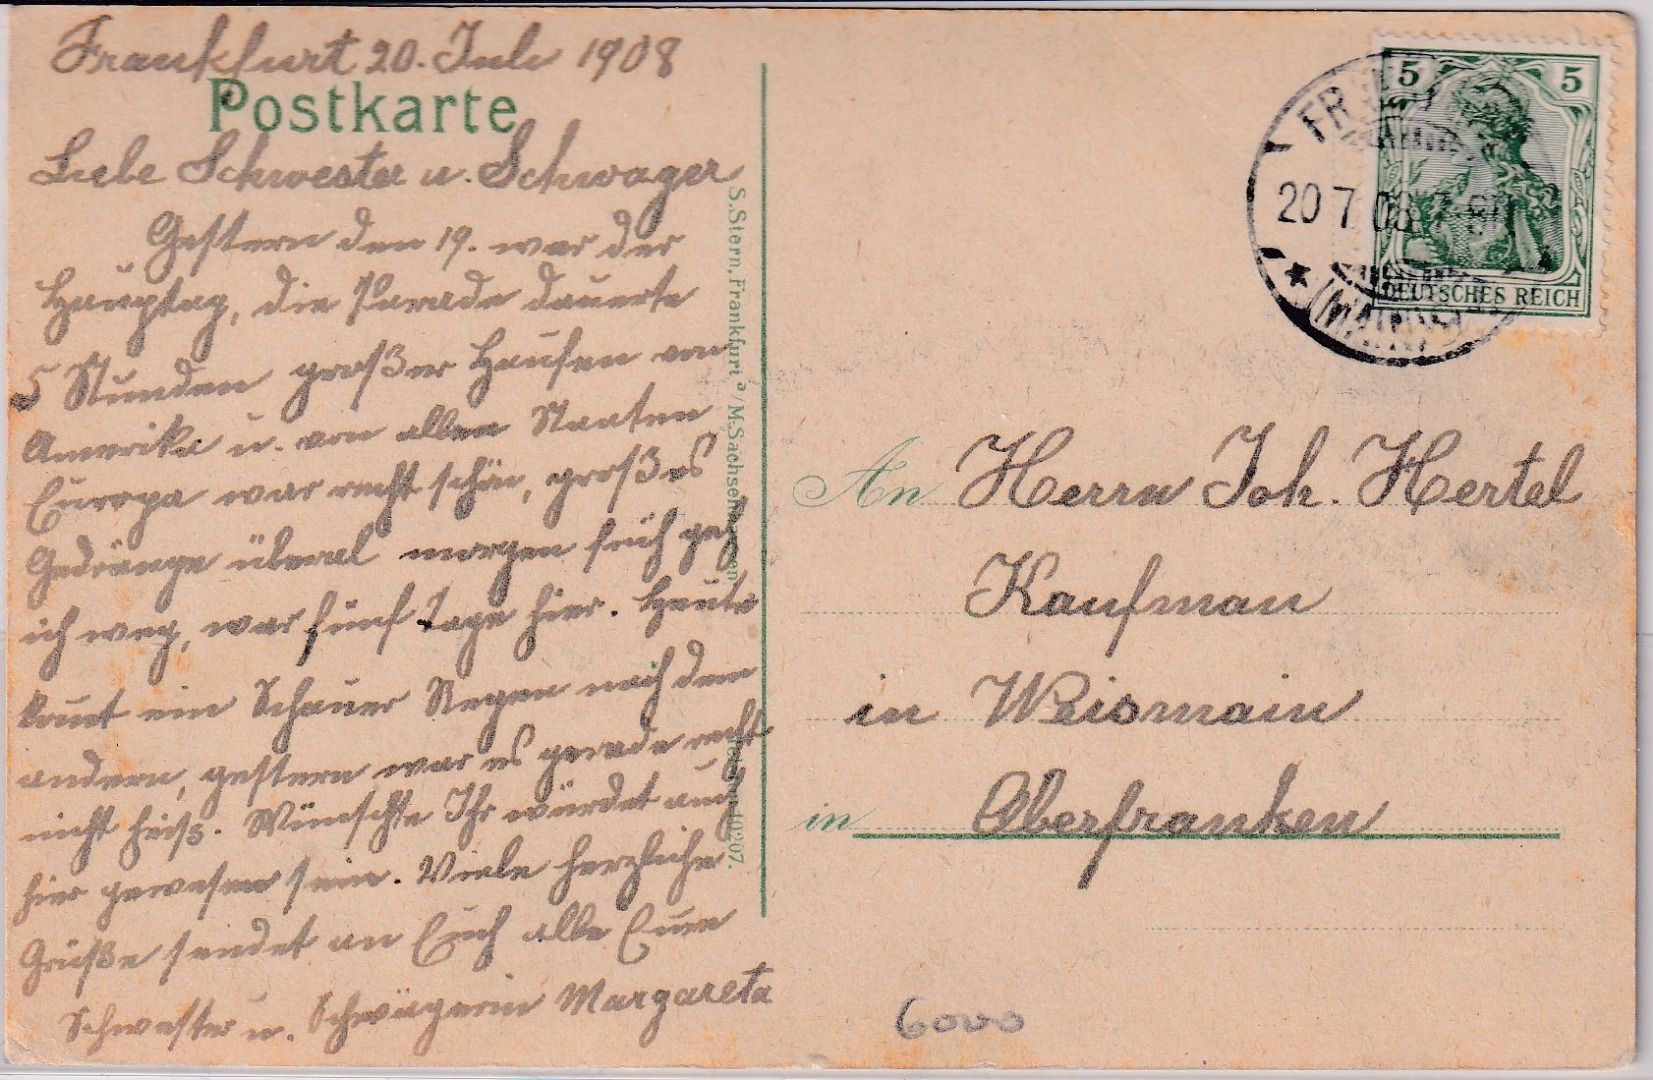 Frankfurt 20. Juli 1908
Postkarte
Liebe Schwester u. Schwager
Gestern den 19. war der
Hauptag, die Parade dauerte
5 Stunden großer Haufen von
Amerika u. von allen Staaten
Europa war recht schön, großes
Gedränge überal morgen früh geh
ich weg, war fünf Tage hier. Heute
komt ein Schauer Regen nach dem
andern, gestern war es gerade recht
nicht heiß. Wünschte Ihr würdet auch
hier gewesen sein. Viele herzliche
Grüße sendet an Euch alle Eure
Schwester u. Schwägerin Margareta
S. Stern, Frankfurt a/M. Sachsenhausen
10207.
5 5
DEUTSCHES REICH
20 7 08
An Herrn Joh. Hertel
Kaufman
in Weismain
in Oberfranken
6000